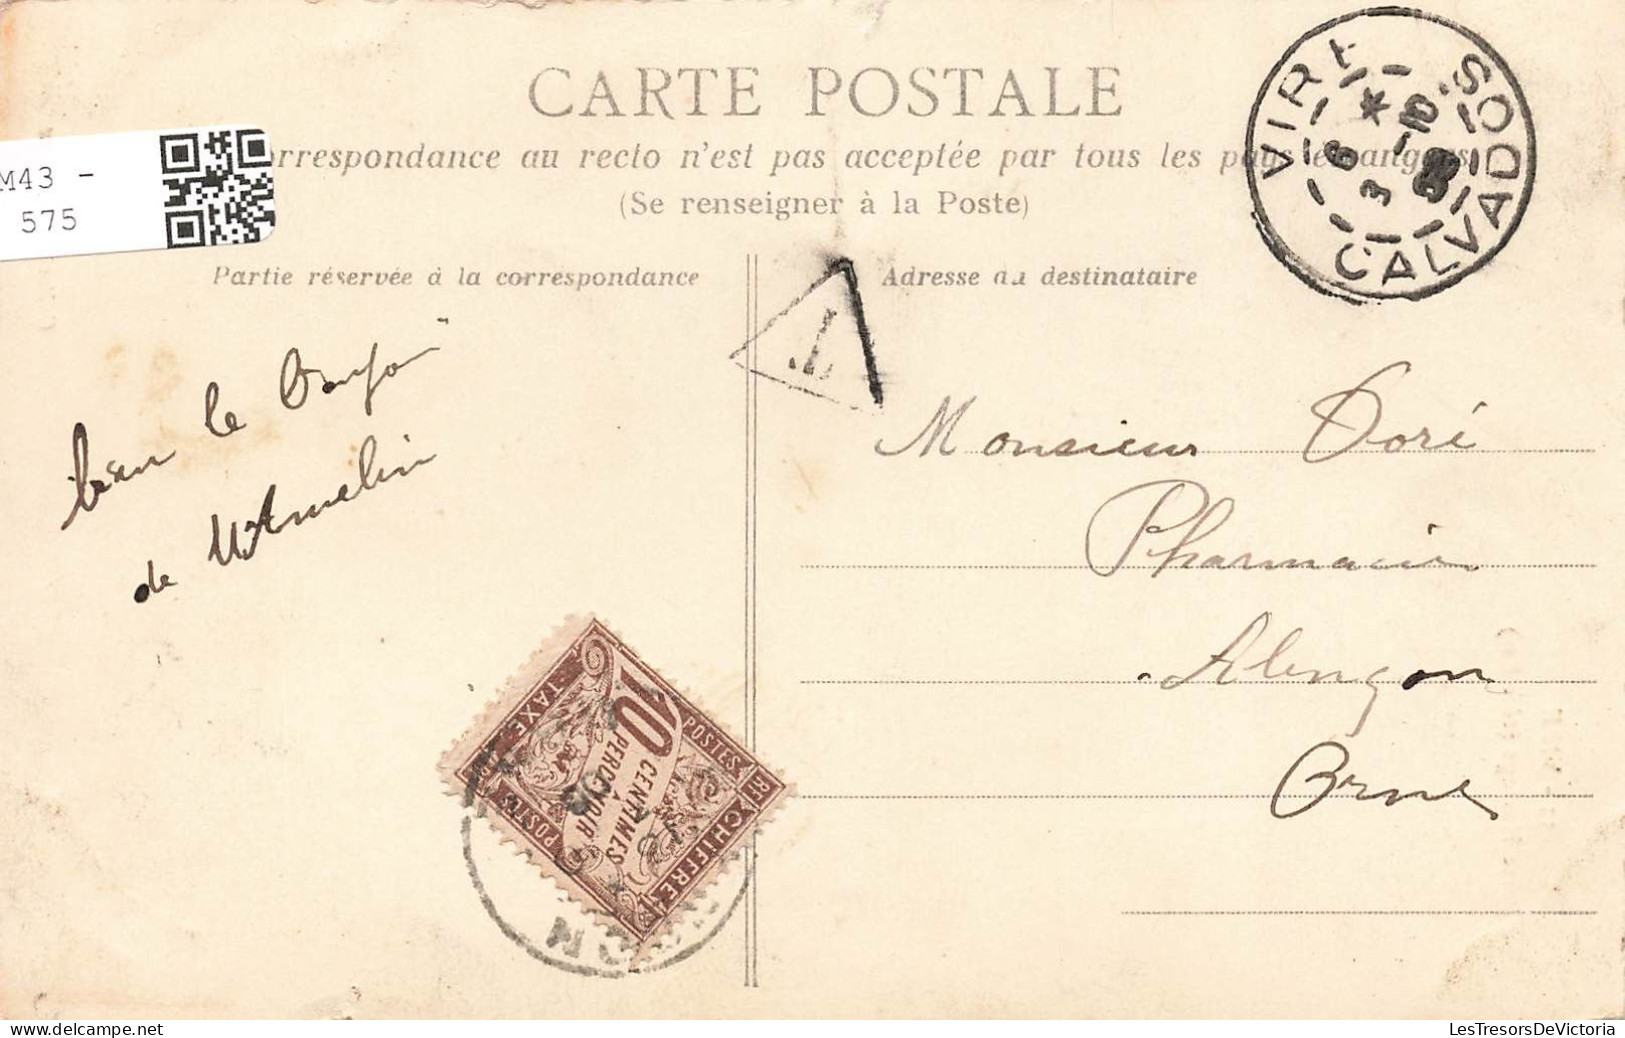 CARTE POSTALE
orrespondance au recto n'est pas acceptée par tous les pays étrangers
(Se renseigner à la Poste)
M43 -
575
VIRE
CALVADOS
6 * -10
3 08
Partie réservée à la correspondance
Adresse du destinataire
T
le
de
Monsieur Doré
Pharmacien
Alençon
Orne
10
CENTIMES
À
PERCEVOIR
POSTES
RF
CHIFFRE
TAXE
POSTES
LesTresorsDeVictoria.com